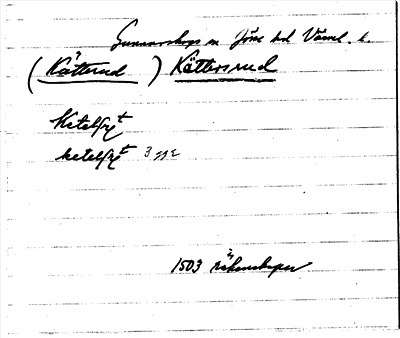 Gunnarskogs sn Jösse hd Värml. l.
(Kätterud) Kättersrud
Ketelſrt
ketelſrt 3 ggr
1503 räkenskaper